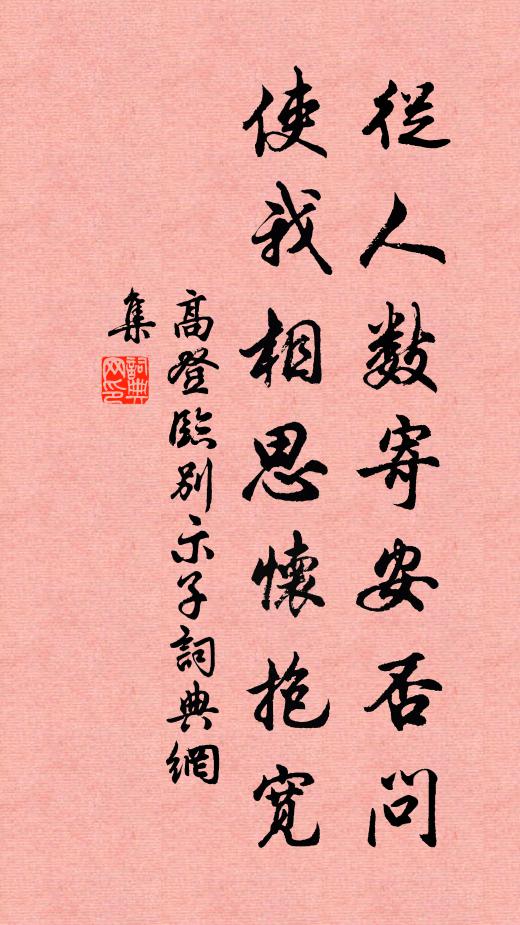 從人數寄安否問
使我相思懷抱寬
高登臨別示子詞典網
集
詞典
网印